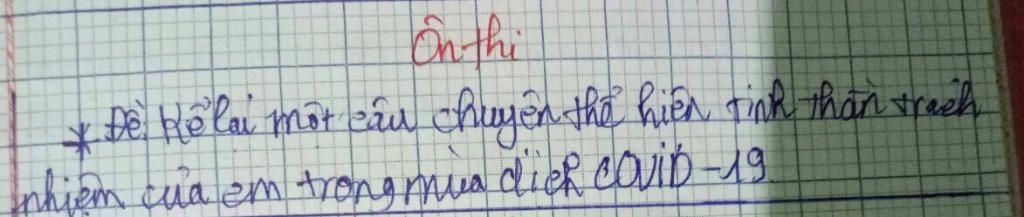 Ôn thi
* Đề: Kể lại một câu chuyện thể hiện tinh thần trách
nhiệm của em trong mùa dịch covid-19